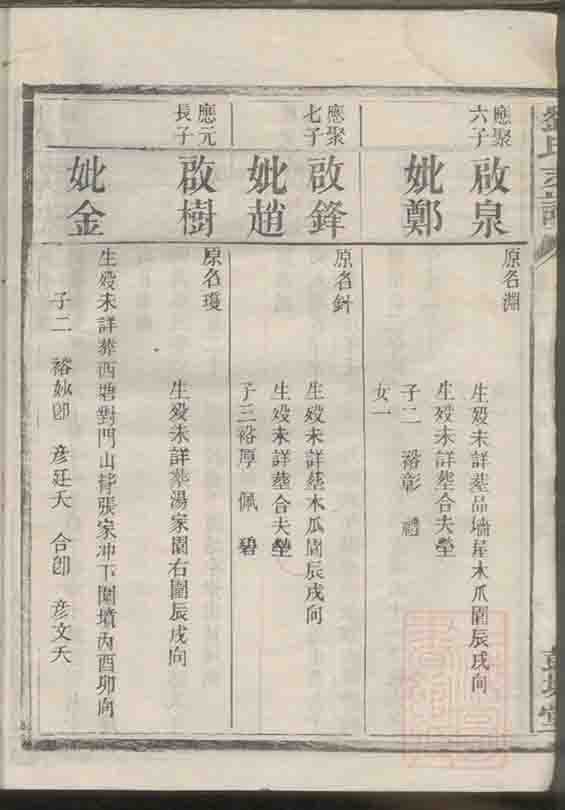 劉氏
應聚
六子
啟泉
原名淵
生歿未詳葬品墻屋木爪園辰戌向
妣鄭
生歿未詳塟合夫塋
子二 裕彰 禮
女一
應聚
七子
啟鋒
原名針
生歿未詳塟木瓜園辰戌向
妣趙
生歿未詳塟合夫塋
子三裕厚 佩 碧
應元
長子
啟樹
原名瓊
生歿未詳葬湯家園右圍辰戌向
妣金
生歿未詳葬西塘對門山背張家冲下圍墳內酉卯向
子二 裕妙卽 彦廷夭 合卽 彦文夭